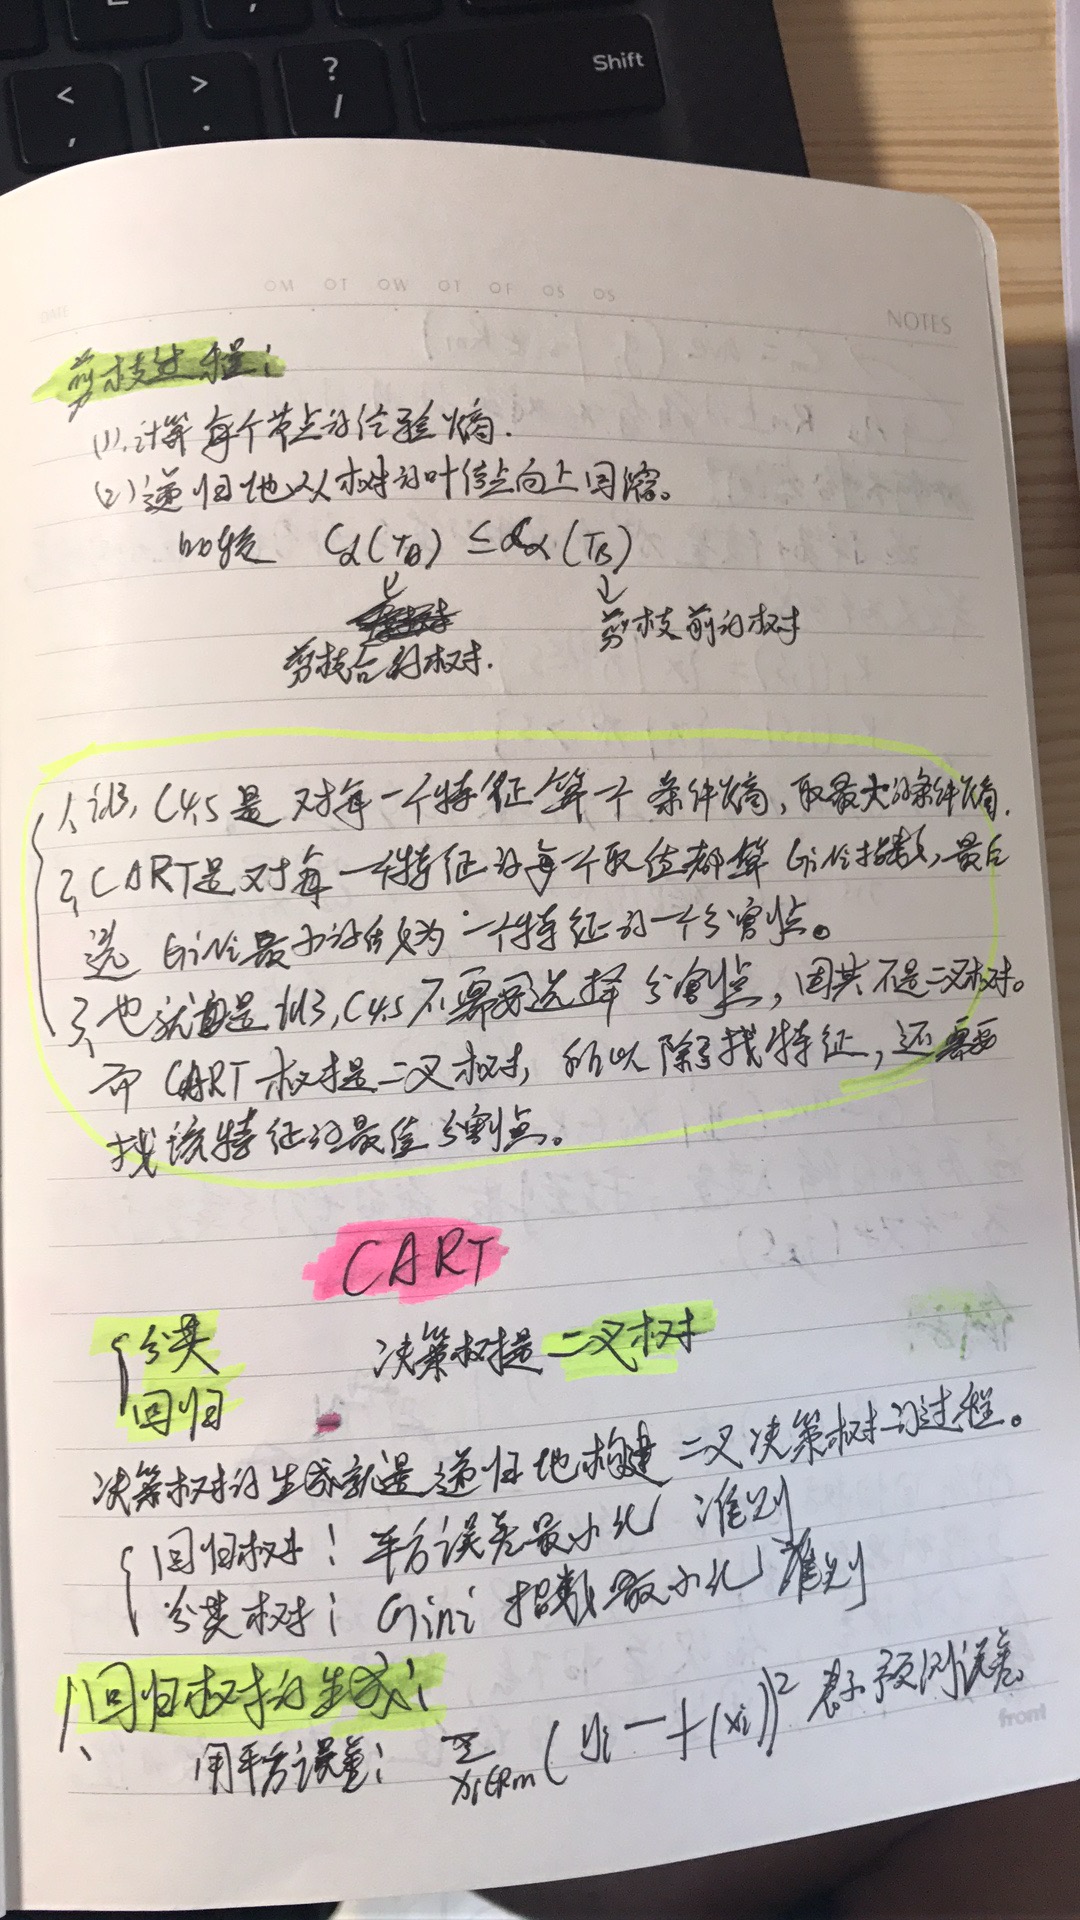 < ,
> .
? /
Shift
DATE
OM OT OW OT OF OS OS
NOTES
剪枝过程:
(1).计算每个节点的经验熵.
(2)递归地从树的叶结点向上回缩。
Cα(TA) ≤ Cα(TB)
剪枝前的树
剪枝后的树.
1、id3, C4.5是对每一个特征算一个条件熵,取最大的条件熵.
2、CART是对每一个特征的每个取值都算Gini指数,最后
选Gini最小的作为一个特征的一个分割点。
3、也就是id3,C4.5不需要选择分割点,因其不是二叉树。
而CART树是二叉树,所以除了找特征,还需要
找该特征的最佳分割点。
CART
分类
决策树是二叉树
回归
决策树的生成就是递归地构建二叉决策树的过程。
回归树:平方误差最小化准则
分类树:Gini指数最小化准则
1、回归树的生成:
用平方误差: Σ xi∈Rm (yi - f(xi))² 表示预测误差。
front